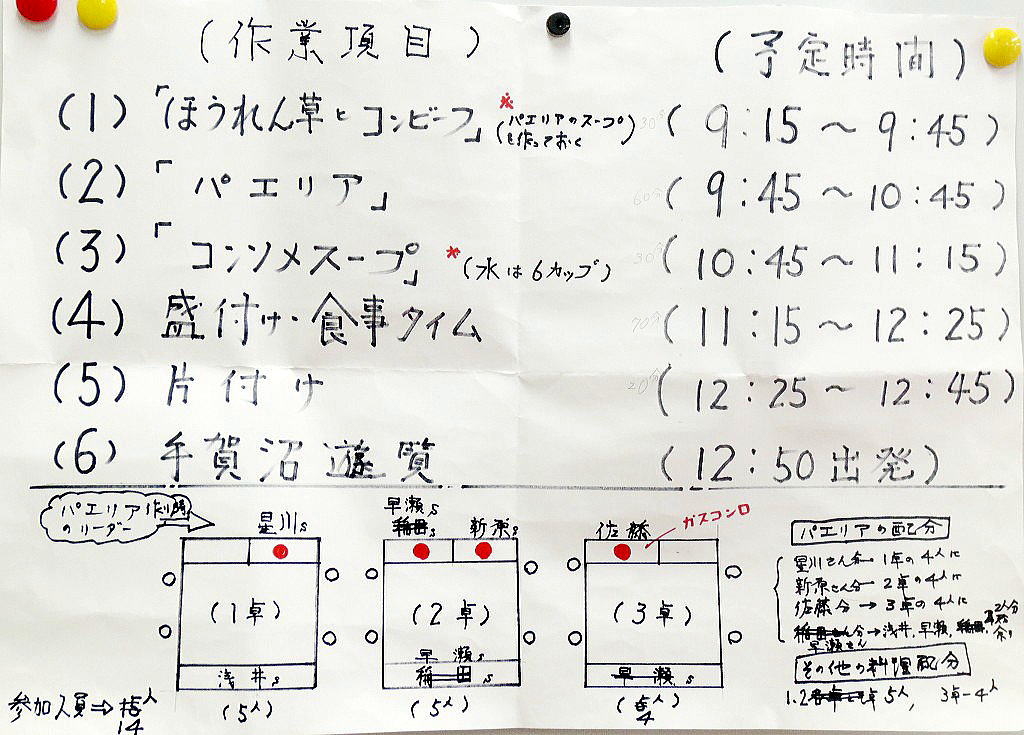 (作業項目)
(予定時間)
(1)「ほうれん草とコンビーフ」 ※(パエリアのスープを作っておく) 30分 (9:15～9:45)
(2)「パエリア」 60分 (9:45～10:45)
(3)「コンソメスープ」 *(水は6カップ) 30分 (10:45～11:15)
(4) 盛付け・食事タイム 70分 (11:15～12:25)
(5) 片付け 20分 (12:25～12:45)
(6) 手賀沼遊覧 (12:50出発)
パエリア作り時
のリーダー
星川s
早瀬s
稲田s
新原s
佐藤
ガスコンロ
(1卓)
(2卓)
(3卓)
浅井s
早瀬s
稲田s
早瀬s
(5人)
(5人)
4
参加人員⇒
14
人
パエリアの配分
星川さん分→1卓の4人に
新原さん分→2卓の4人に
佐藤分→3卓の4人に
稲田さん分→浅井,早瀬,稲田,
早瀬さん
2人分
その他の料理配分
1.2卓 5人, 3卓-4人